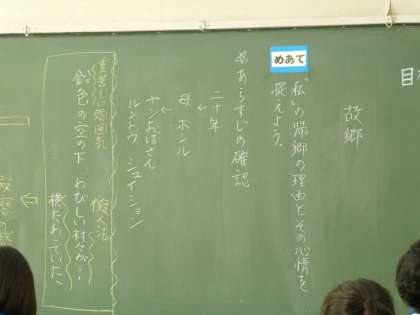 目
故郷
めあて
「私」の帰郷の理由とその心情を
捉えよう。
※あらすじの確認
二十年
↓
母 ホンル
↓
ヤンおばさん
ルントウ シュイション
重苦しい雰囲気 擬人法
鉛色の空の下 わびしい村々が…
横たわっていた。